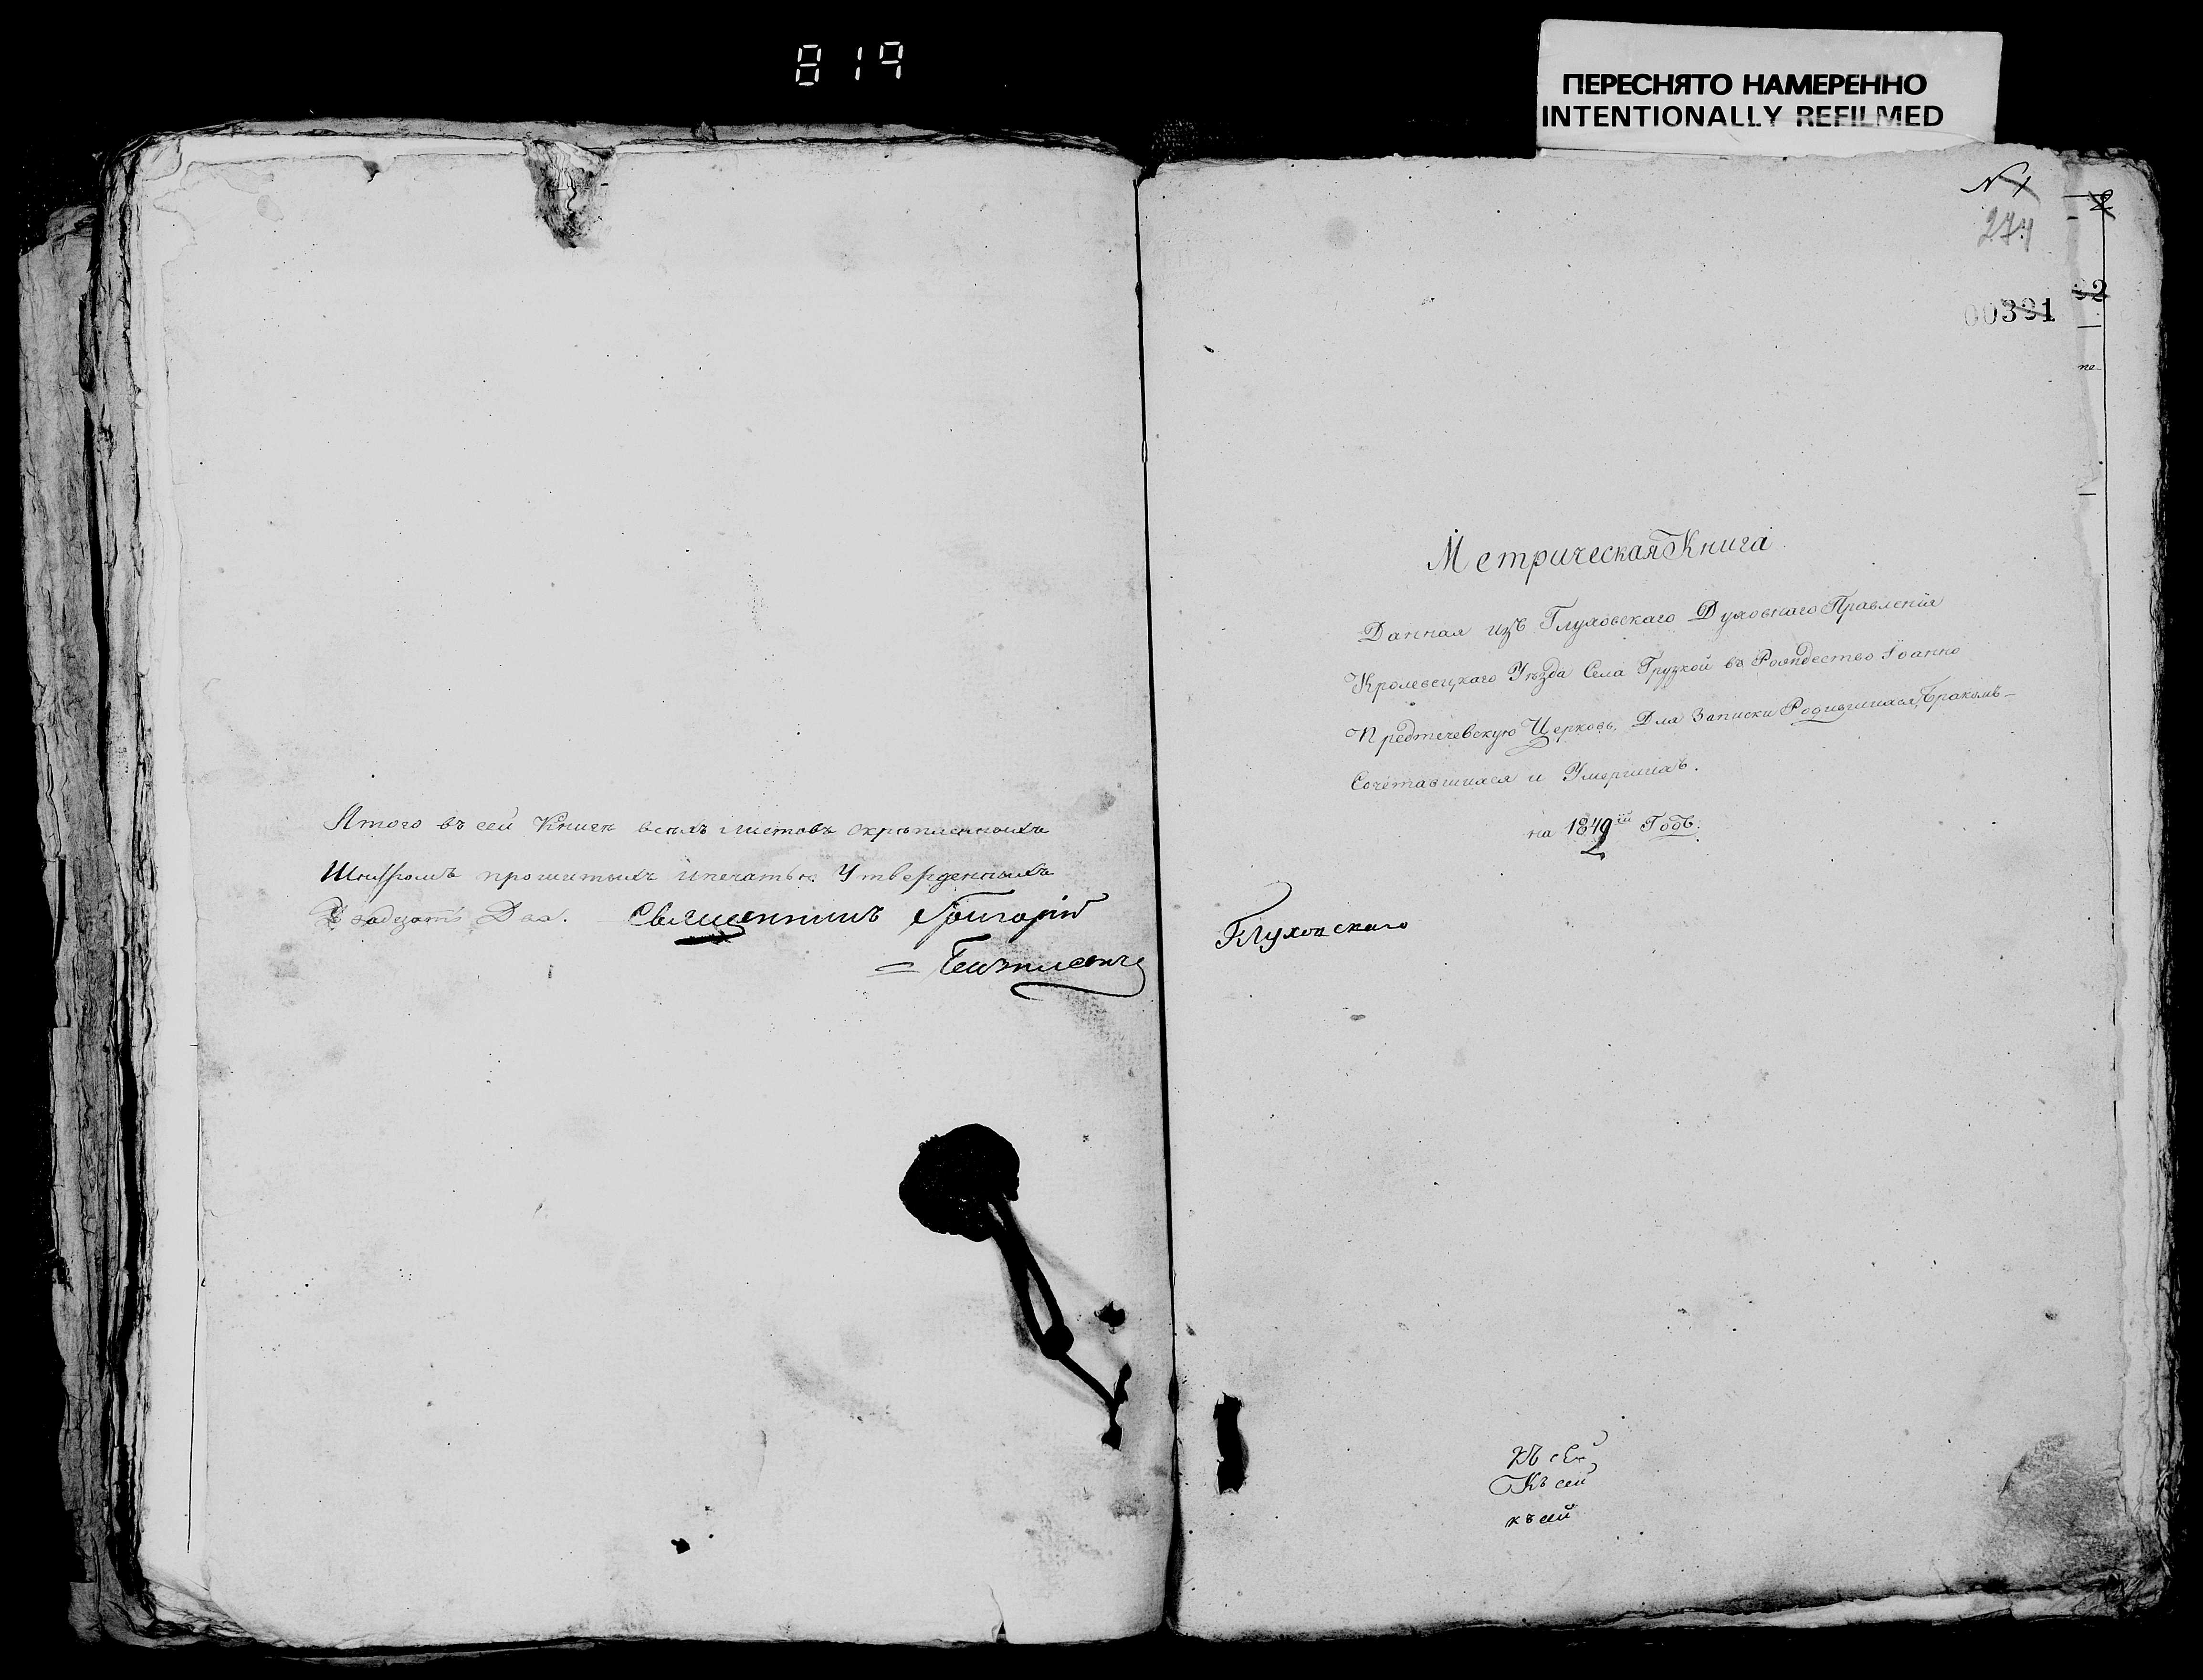 819
ПЕРЕСНЯТО НАМЕРЕННО
INTENTIONALLY REFILMED
N 1
274
00391
Итого въ сей Книгѣ всѣхъ листовъ скрѣпленныхъ
Шнуромъ прошитыхъ ипечатью Утвержденныхъ
Двадцать Два. Священникъ Григорій
Метрическая Книга
Данная изъ Глуховскаго Духовнаго Правленія
Кролевецкаго Уѣзда Села Грузкой въ Рождество Іоанно
Предтечевскую Церковь, Для Записки Родившихся, Бракомъ-
Сочетавшихся и Умершихъ.
на 1842й Годъ.
Глуховскаго
Къ сей
Къ сей
къ сей